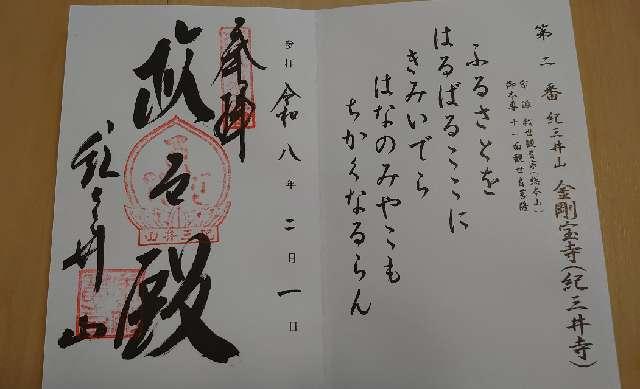 第二番 紀三井山 金剛宝寺(紀三井寺)
宗派 救世観音宗(総本山)
御本尊 十一面観世音菩薩
ふるさとを
はるばるここに
きみいでら
はなのみやこも
ちかくなるらん
奉拝
令和八年二月一日
殿
紀三井山